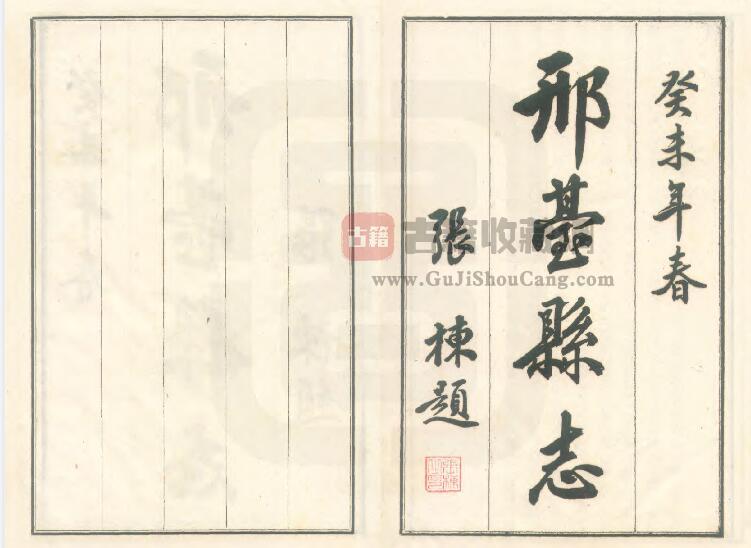 癸未年春
邢臺縣志
張棟題
古籍
古籍收藏网
www.GuJiShouCang.com